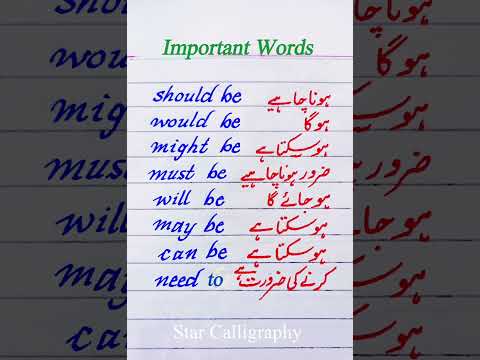 Important Words
should be ہونا چاہیے
would be ہو گا
might be ہو سکتا ہے
must be ضرور ہونا چاہیے
will be ہو جائے گا
may be ہو سکتا ہے
can be ہو سکتا ہے
need to کرنے کی ضرورت ہے
Star Calligraphy